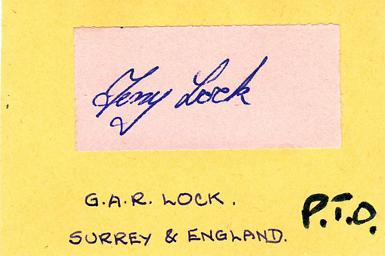 Tony Lock
G.A.R. LOCK.
SURREY & ENGLAND.
P.T.O.